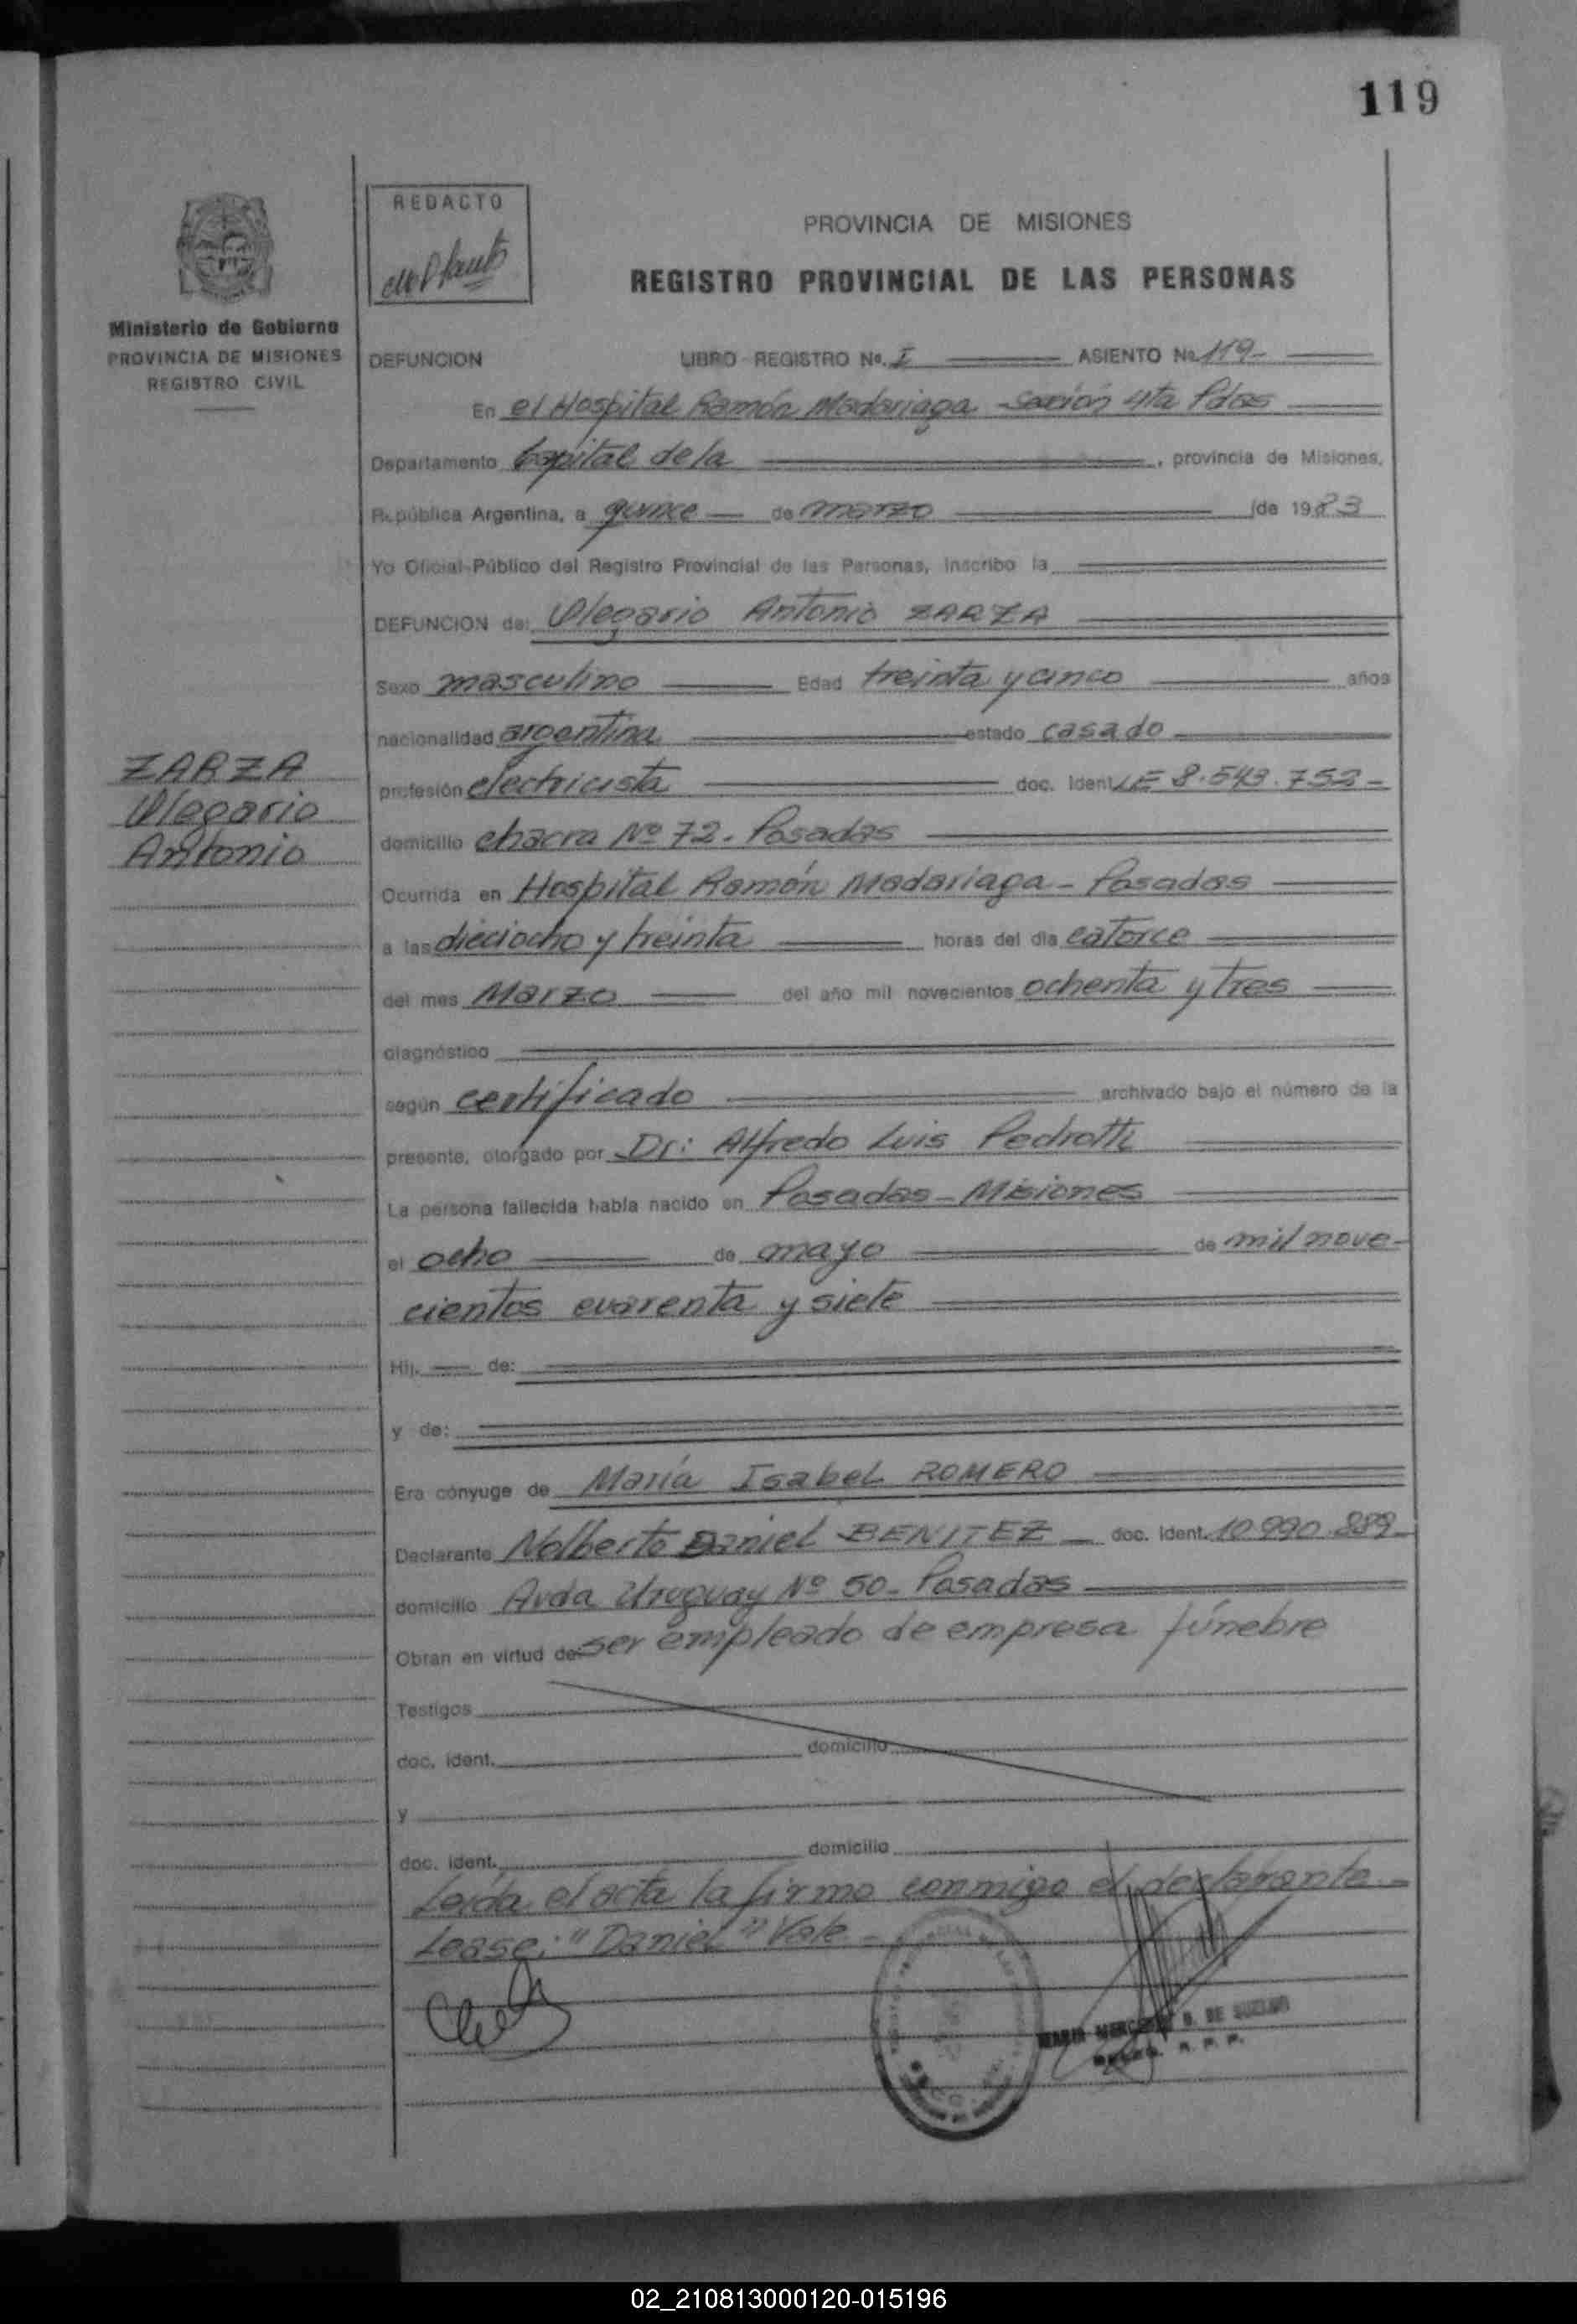 119
REDACTO
PROVINCIA DE MISIONES
REGISTRO PROVINCIAL DE LAS PERSONAS
Ministerio de Gobierno
PROVINCIA DE MISIONES
REGISTRO CIVIL
DEFUNCION LIBRO-REGISTRO No. I ASIENTO No. 119-
En el Hospital Ramón Madariaga - Sección 4ta Pdas
Departamento Capital de la, provincia de Misiones,
República Argentina, a quince de marzo de 1983
Yo Oficial Público del Registro Provincial de las Personas, inscribo la
DEFUNCION de: Olegario Antonio ZARZA
Sexo masculino Edad treinta y cinco años
nacionalidad argentina estado casado
ZARZA
Olegario
Antonio
profesión electricista doc. Ident. LE 8.543.752-
domicilio chacra Nº 72. Posadas
Ocurrida en Hospital Ramón Madariaga - Posadas
a las dieciocho y treinta horas del día catorce
del mes Marzo del año mil novecientos ochenta y tres
diagnóstico
según certificado archivado bajo el número de la
presente, otorgado por Dr: Alfredo Luis Pedrotti
La persona fallecida había nacido en Posadas - Misiones
el ocho de mayo de mil nove-
cientos cuarenta y siete
Hij. de:
y de:
Era cónyuge de María Isabel ROMERO
Declarante Nolberto Daniel BENITEZ doc. Ident. 10.990.889
domicilio Avda Uruguay Nº 50 - Posadas
Obran en virtud de: ser empleado de empresa fúnebre
Testigos
doc. ident. domicilio
y
doc. ident. domicilio
Leída el acta la firma conmigo el declarante.-
Lease: "Daniel" Vale -
02_210813000120-015196